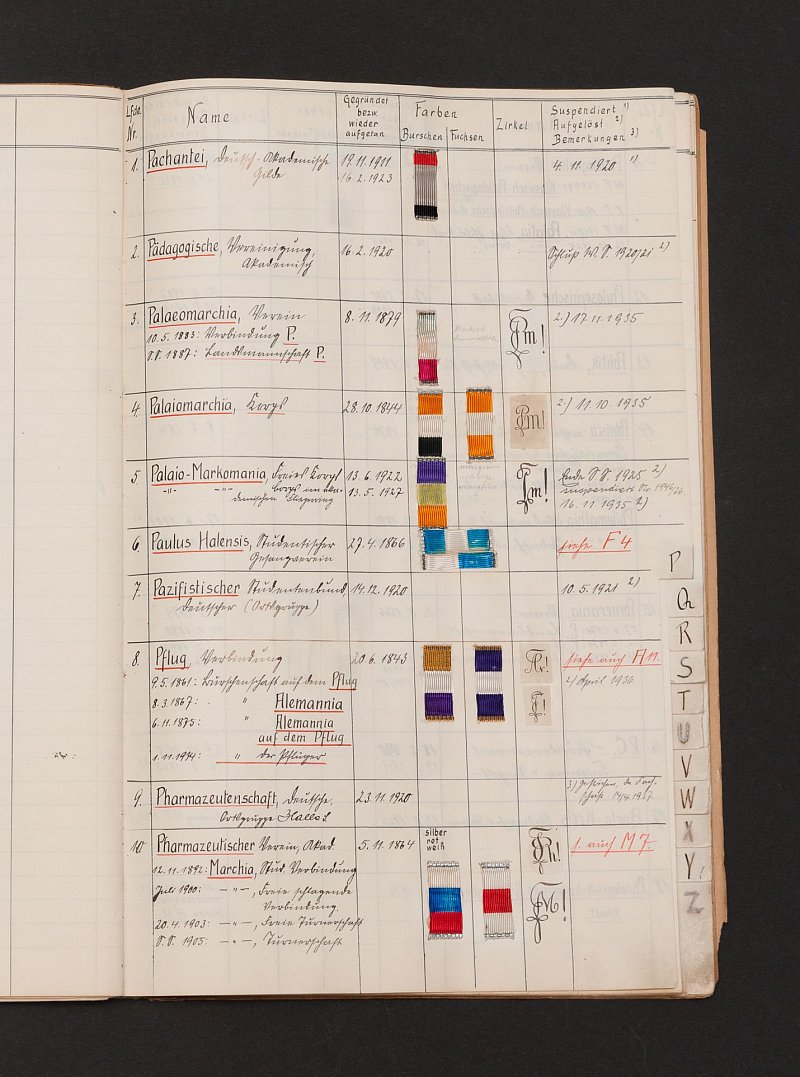 Lfde. Nr.
Name
Gegründet bezw. wieder aufgetan
Farben
Burschen Fuchsen
Zirkel
Suspendiert 1)
Aufgelöst 2)
Bemerkungen 3)
1. Pachantei, Deutsch-Akademische 19.11.1911 4. 11. 1920 1)
Gilde 16.2.1923
2. Pädagogische, Vereinigung, 16.2.1920 Schluß W. S. 1920/21 2)
Akademisch
3. Palaeomarchia, Verein 8. 11. 1879 2.) 17.11.1935
10.5.1883: Verbindung P.
S.S. 1887: Landsmannschaft P.
4. Palaiomarchia, Korps 28.10.1844 2.) 11.10.1935
5. Palaio-Markomania, Freies Korps 13.6.1922 Ende S.S. 1925 2)
-"- -"- Korps im aka- 13.5.1927
demischen
16.11.1935 2)
6. Paulus Halensis, Studentischer 27.4.1866 siehe F 4
Gesangverein
7. Pazifistischer Studentenbund, 14.12.1920 10.5.1921 2)
Deutscher (Ortsgruppe)
8. Pflug, Verbindung 20.6.1843 siehe auch A 11.
9.5.1861: Burschenschaft auf dem Pflug 2) April 1936.
8.3.1867: " Alemannia
6.11.1875: " Alemannia
auf dem Pflug
" der Pflüger
9. Pharmazeutenschaft, Deutsche, 23.11.1920
Ortsgruppe Halle S
10 Pharmazeutischer Verein, Akad. 5.11.1864 silber
rot
weiß
s. auch M 7
12.11.1892: Marchia, Stud. Verbindung
Juli 1900: -"-, Freie schlagende
Verbindung.
20.4.1903: -"-, Freie Turnerschaft
S.S. 1905: -"-, Turnerschaft
P
Q
R
S
T
U
V
W
X
Y
Z